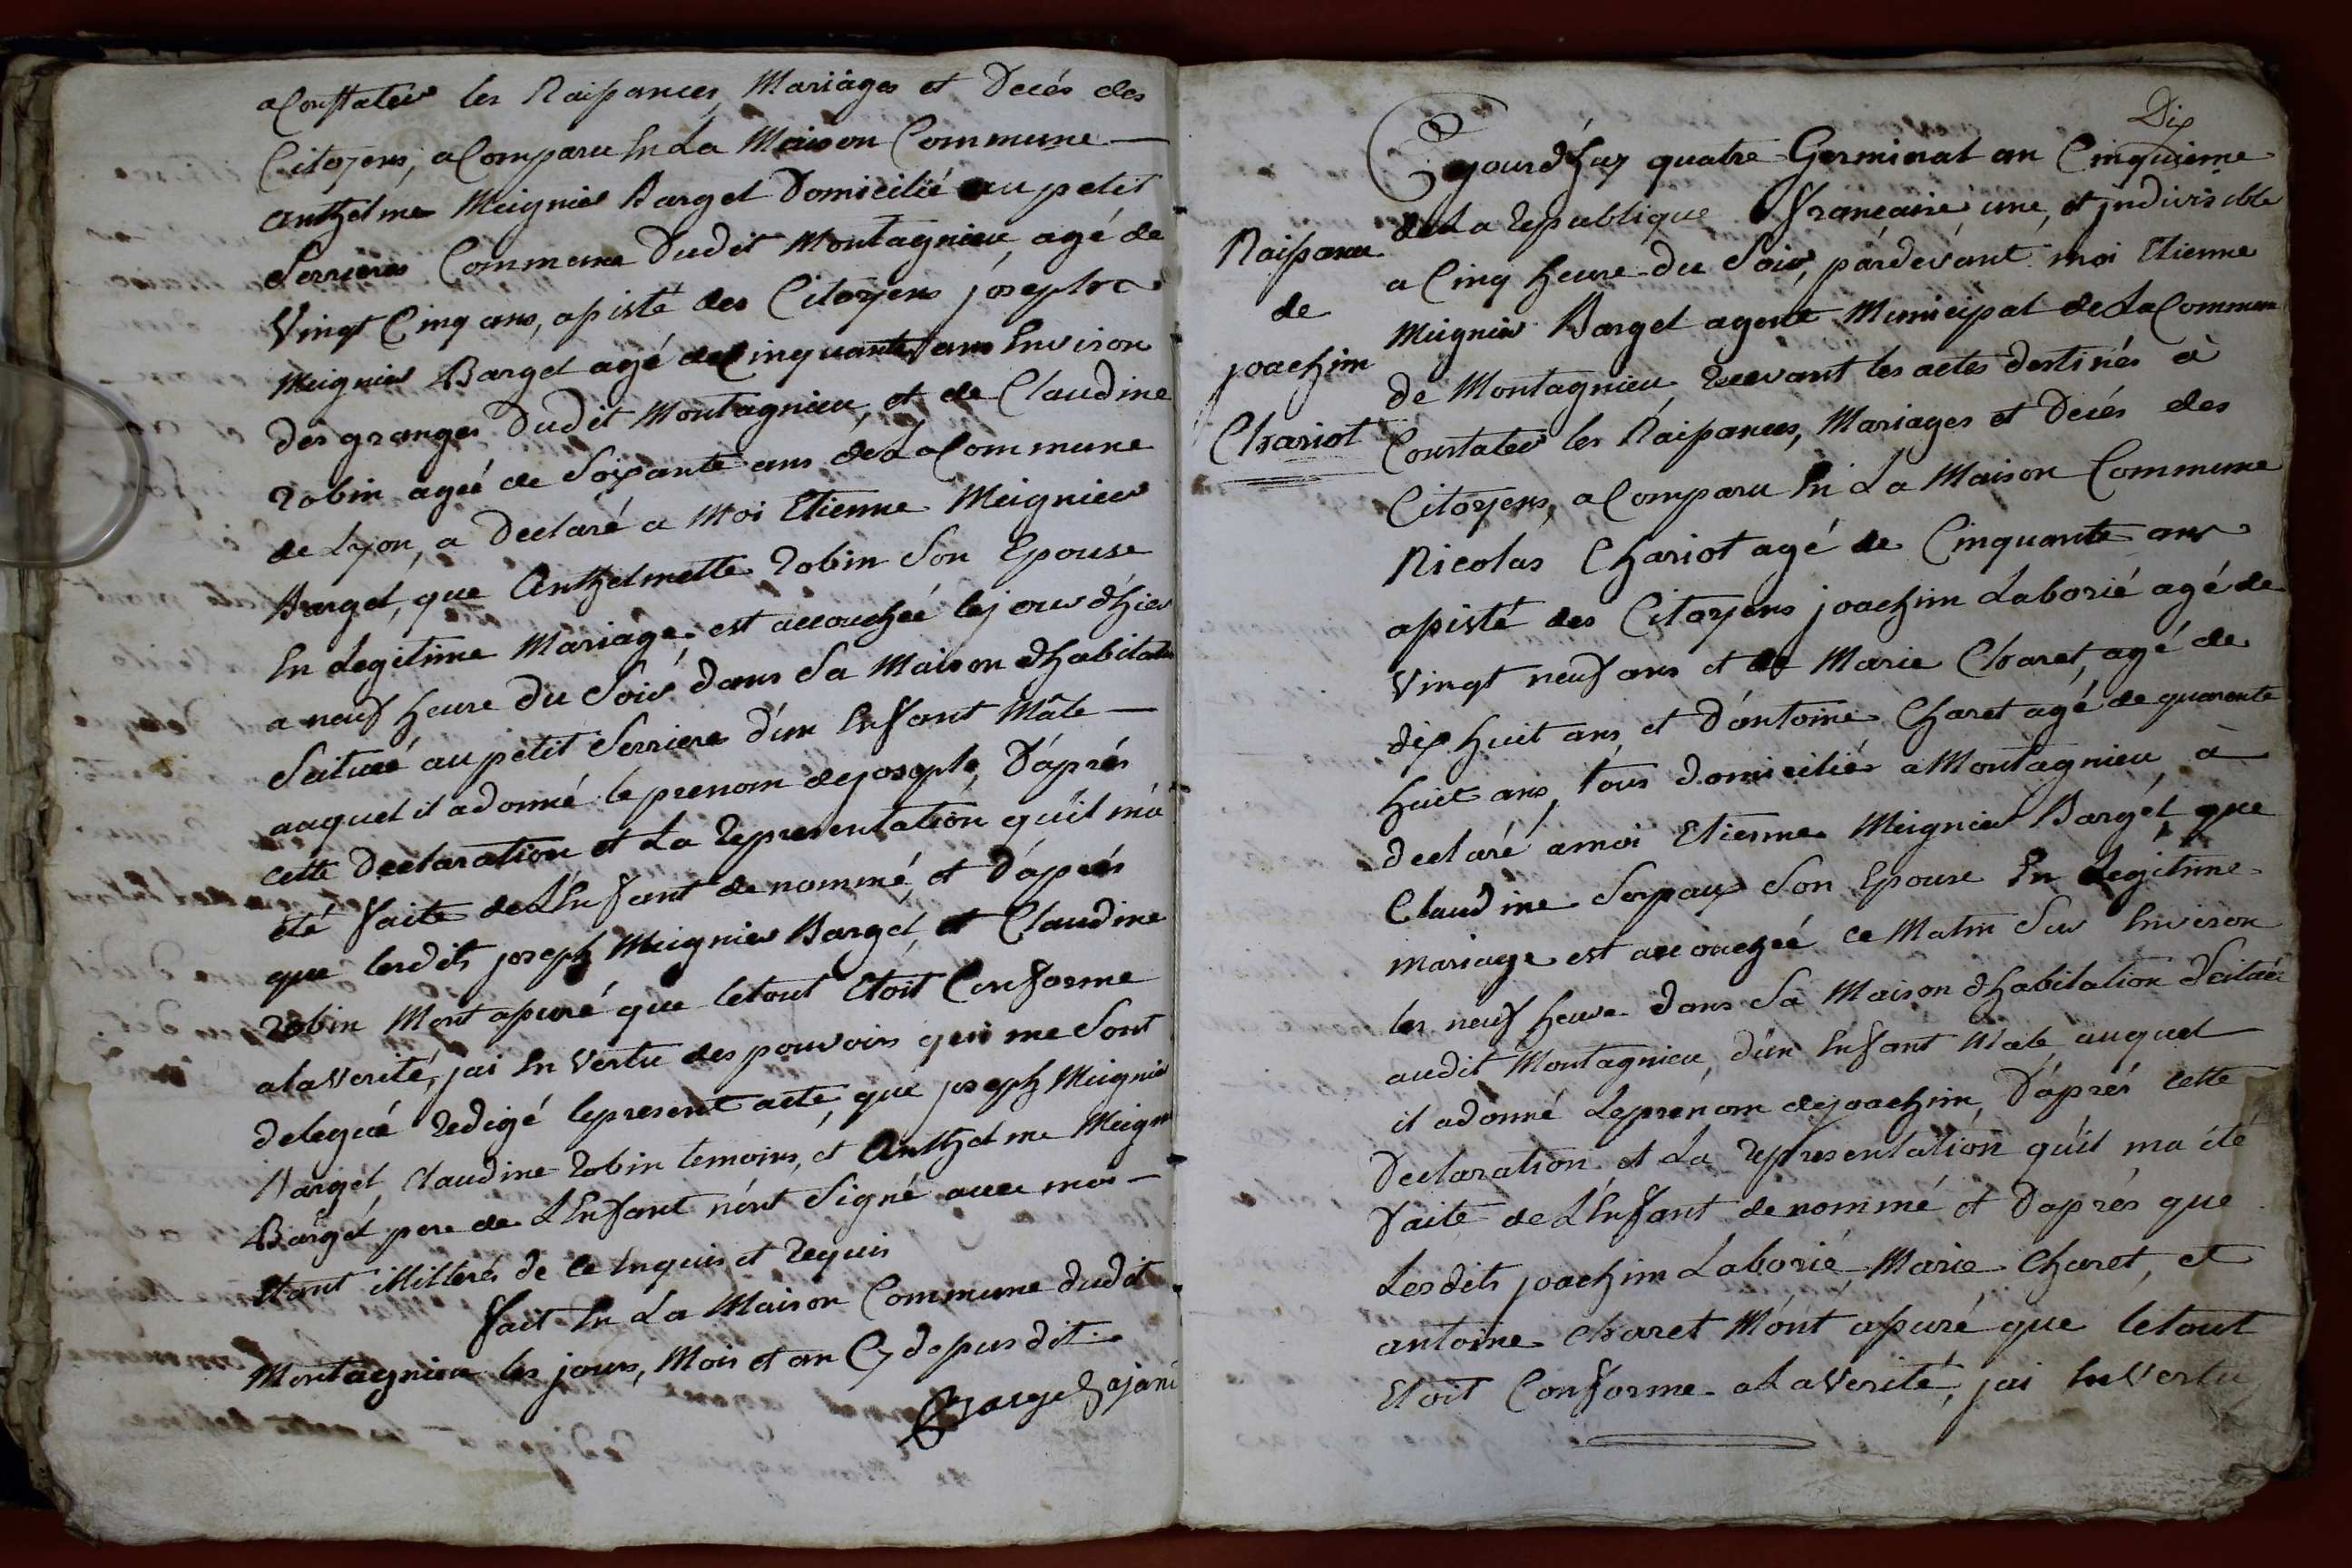 aConstater les Naissances, Mariages et Decés des
Citoyens, aComparu En La Maison Commune
Anthelme Meignier Barget Domicilié au petit
Serrieres Commune Dudit Montagnieu, agé de
Vingt Cinq ans, assisté des Citoyens joseph
Meignier Barget agé deCinquante ans Environ
des granges Dudit Montagnieu, et de Claudine
Robin ageé de Soixante ans deLaCommune
de Lyon, a Declaré a Moi Etienne Meignier
Barget, que Anthelmette Robin Son Epouse
En Legitime Mariage, est accouchéé lejour d'hier
a neuf heure du Soir dans Sa Maison d'habitation
Scituéé au petit Serriere d'un Enfant Mâle
auquel il adonné le prenom dejoseph, D'aprés
cette Declaration et La Representation qu'il m'a
été faite deLEnfant denommé, et D'aprés
que lesdits joseph Meignier Barget, et Claudine
Robin Mont assuré que letout Etoit Conforme
alaverité, jai En Vertu des pouvoirs qui me Sont
delegué Redigé lepresent acte, que joseph Meignier
Barget, Claudine Robin temoins, et Anthelme Meignier
Barget pere de LEnfant n'ont Signé avec moi
Etant illiterés de ce Enquis et Requis
fait En La Maison Commune dudit
Montagnieu les jours, Mois et an Cy dessus dit
Barget
Dix
Cejourd'huy quatre Germinal an Cinquieme
deLa Republique francaise une, et jndivisible
a Cinq heure du Soir, pardevant moi Etienne
Meignier Barget agent Municipal deLaCommune
de Montagnieu, Recevant les actes destinés à
Constater les Naissances, Mariages et Decés des
Citoyens, aComparu En La Maison Commune
Nicolas Chariot agé de Cinquante ans
assisté des Citoyens joachim Laborié agé de
Vingt neuf ans et de Marie Charet, agé de
dix huit ans, et D'antoine Charet agé de quarante
huit ans, tous domiciliés aMontagnieu, à
declaré amoi Etienne Meignier Barget que
Claudine Serpaux Son Epouse En Legitime
mariage est accouchéé ce Matin Sur Environ
les neuf heure dans Sa Maison d'habitation Scituéé
audit Montagnieu, d'un Enfant Male auquel
il adonné Leprenom dejoachim, D'aprés cette
Declaration et La Representation qu'il ma été
faite deLEnfant denommé et D'aprés que
Lesdits joachim Laborié, Marie Charet, et
antoine Charet M'ont assuré que letout
Etoit Conforme aLaVerité, jai EnVertu
Naissance
de
joachim
Chariot